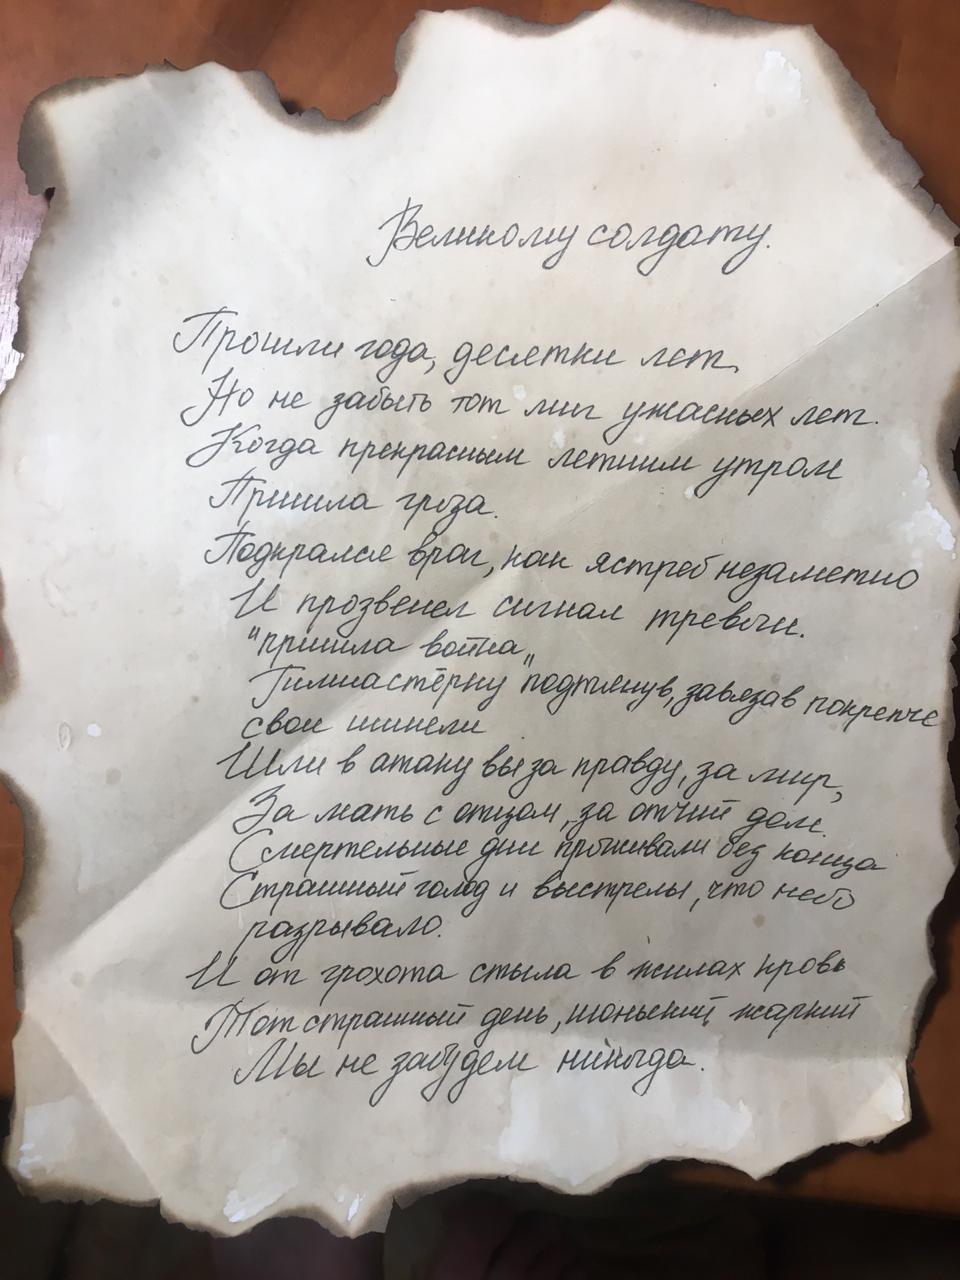 Великому солдату.
Прошли года, десятки лет,
Но не забыть тот миг ужасных лет.
Когда прекрасным летним утром
Пришла гроза.
Подкрался враг, как ястреб незаметно
И прозвенел сигнал тревоги.
"пришла война„
Гимнастёрку подтянув, завязав покрепче
свои шинели
Шли в атаку вы за правду, за мир,
За мать с отцом, за отчий дом.
Смертельные дни проживали без конца
Страшный голод и выстрелы, что небо
разрывало.
И от грохота стыла в жилах кровь
Тот страшный день, июньский жаркий
Мы не забудем никогда.